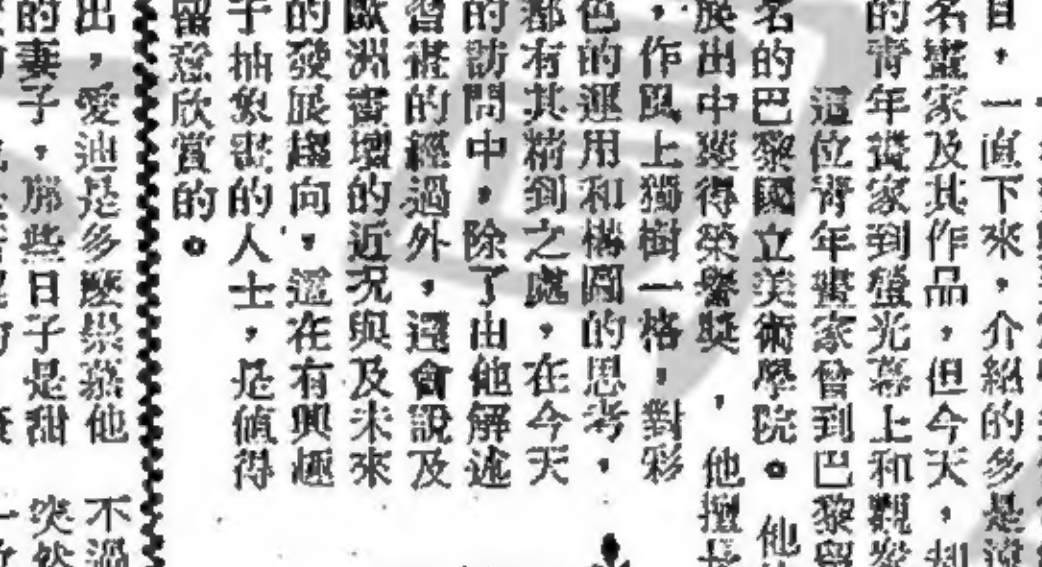 目，一直下來，介紹的多是
名畫家及其作品，但今天，却
的青年畫家到螢光幕上和觀衆
這位青年畫家曾到巴黎留
名的巴黎國立美術學院。他
展出中獲得榮譽獎，他擅長
，作風上獨樹一格，對彩
色的運用和構圖的思考，
都有其精到之處，在今天
的訪問中，除了由他解述
習畫的經過外，還會說及
歐洲畫壇的近況與及未來
的發展趨向，這在有興趣
于抽象畫的人士，是値得
留意欣賞的。
出，愛迪是多麽崇慕他
的妻子，那些日子是甜
不過
突然